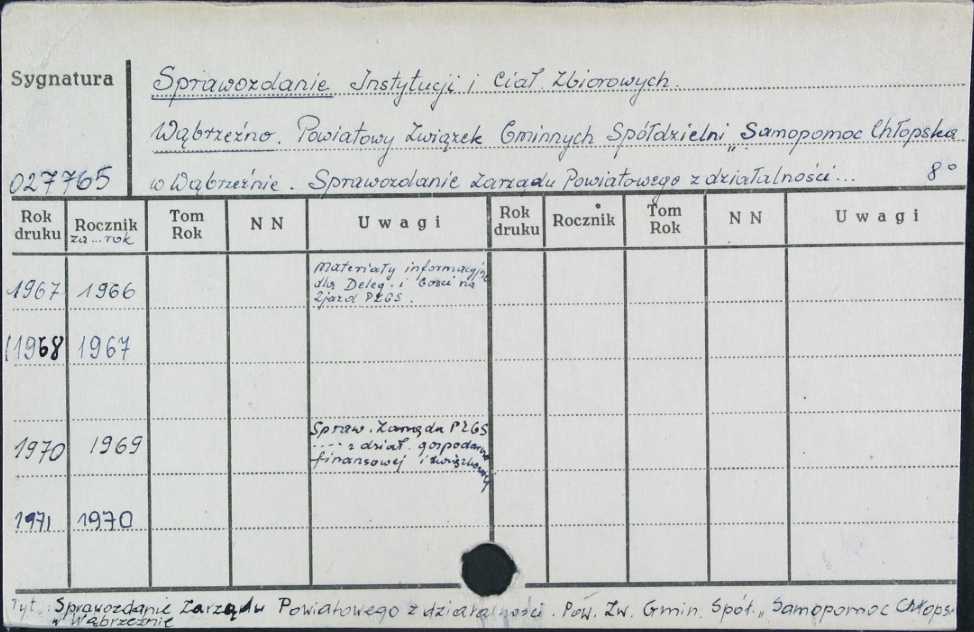 Sygnatura
Sprawozdanie Instytucji i Ciał Zbiorowych.
Wąbrzeźno. Powiatowy Związek Gminnych Spółdzielni „Samopomoc Chłopska
027765 w Wąbrzeźnie. Sprawozdanie Zarządu Powiatowego z działalności... 8°
Rok druku Rocznik za...rok Tom Rok N N Uwagi Rok druku Rocznik Tom Rok N N Uwagi
1967 1966 Materiały informacyjne
dla Deleg. i Gości na
Zjazd PZGS.
(1968 1967
1970 1969 Spraw. Zarządu PZGS
.... z dział. gospodarczo
finansowej i związkowej
1971 1970
Tyt.: Sprawozdanie Zarządu Powiatowego z działalności. Pow. Zw. Gmin. Spół. „Samopomoc Chłops
w Wąbrzeźnie